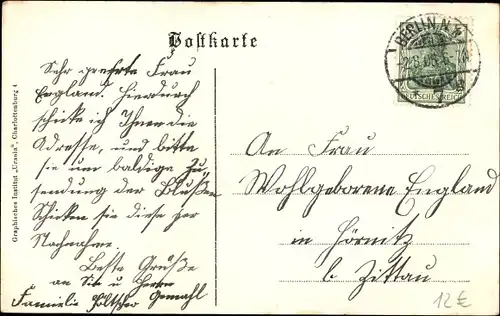 Postkarte
Sehr geehrte Frau
England. Hierdurch
schicke ich Ihnen die
Adresse, und bitte
sie um baldige Zu
sendung der Blußen
Schicken sie diese per
Nachnahme.
Beste Grüße
an Sie u Herrn
Familie Gemahl
Graphisches Institut „Urania", Charlottenburg 4
BERLIN. N.
DEUTSCHES REICH
An Frau
Wohlgeborene England
in Hörnitz
b. Zittau
12€